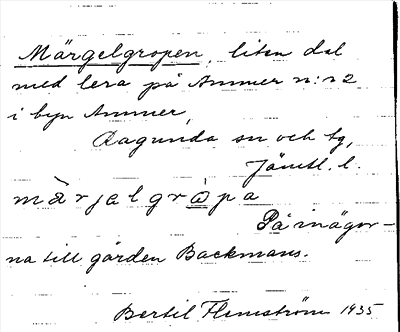 Märgelgropen, liten dal
med lera på Ammer n:r 2
i byn Ammer,
Ragunda sn och tg,
Jämtl. l.
mä̀rjalgrò̱pa
På inägor-
na till gården Backmans.
Bertil Flemström 1935